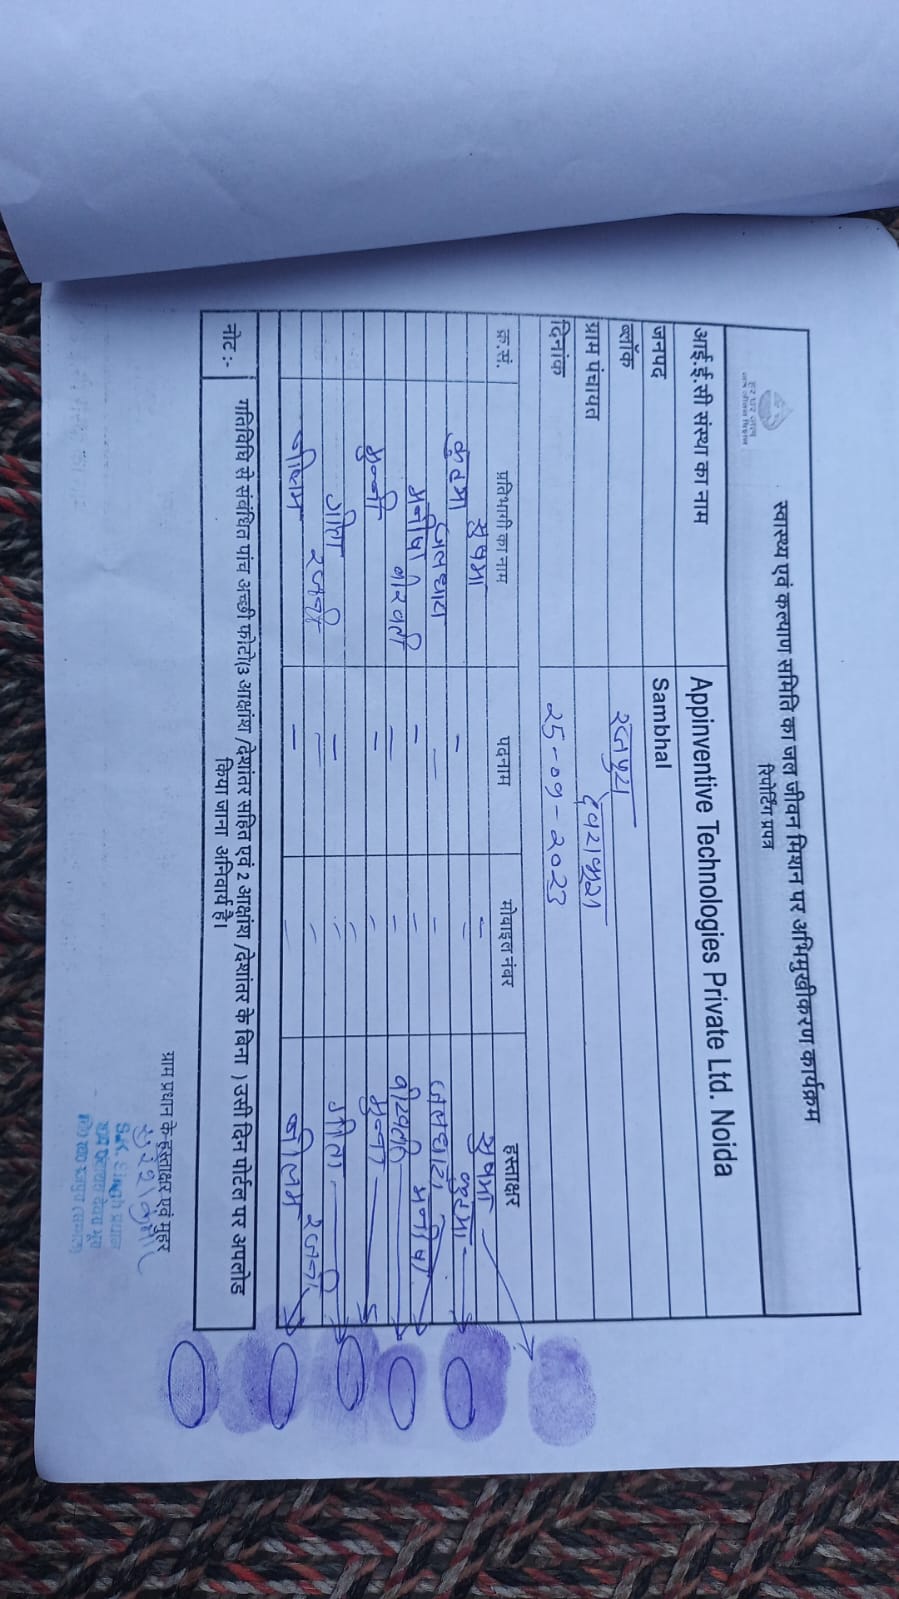 हर घर जल
जल जीवन मिशन
स्वास्थ्य एवं कल्याण समिति का जल जीवन मिशन पर अभिमुखीकरण कार्यक्रम
रिपोर्टिंग प्रपत्र
आई.ई.सी संस्था का नाम Appinventive Technologies Private Ltd. Noida
जनपद Sambhal
ब्लॉक रजपुरा
ग्राम पंचायत
दिनांक 25-09-2023
क्र.सं. प्रतिभागी का नाम पदनाम मोबाइल नंबर हस्ताक्षर
सुषमा - - सुषमा
जलधारा - - जलधारा
मनीषा - - मनीषा
वीरवती - - वीरवती
मुन्नी - - मुन्नी
गीता - - गीता
रजनी - - रजनी
नीलम - - नीलम
नोट :- गतिविधि से संबंधित पांच अच्छी फोटो(3 आक्षांश /देशांतर सहित एवं 2 आक्षांश /देशांतर के बिना ) उसी दिन पोर्टल पर अपलोड
किया जाना अनिवार्य है।
ग्राम प्रधान के हस्ताक्षर एवं मुहर
S.K. Singh प्रधान